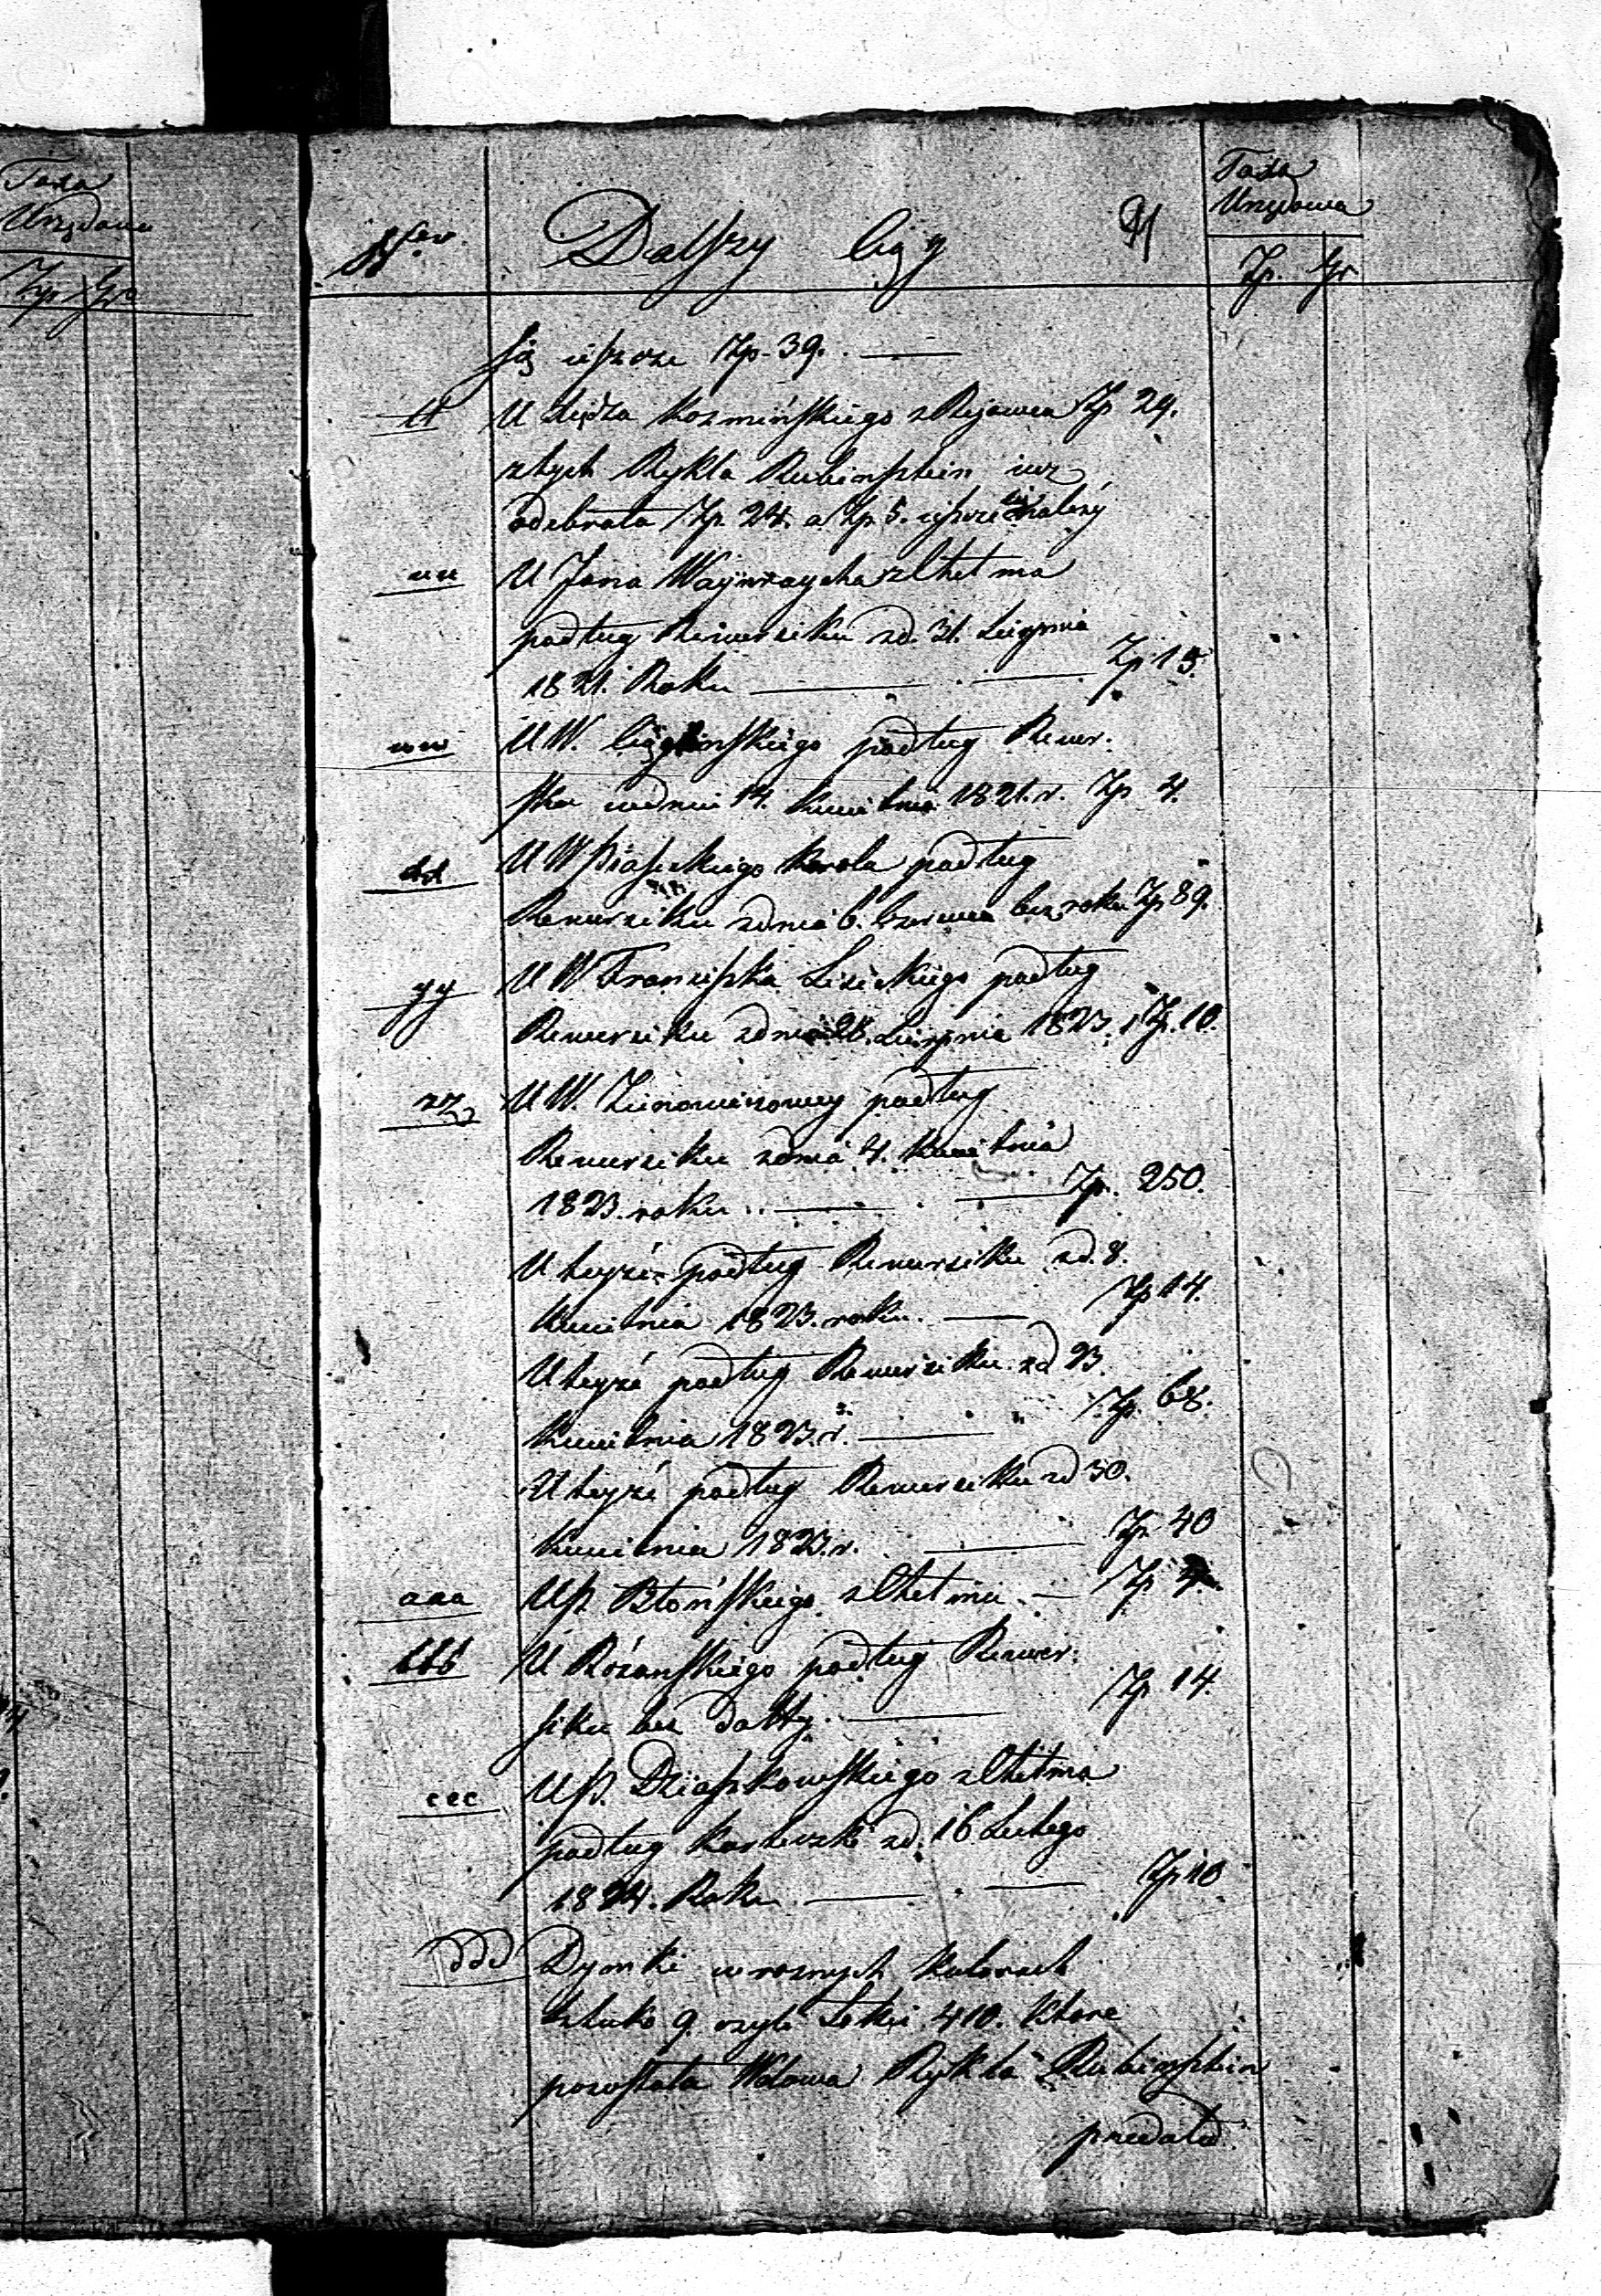 Taxa
Urzędowa
Zp Gr
Nrów
Dalszy Ciąg
91
Taxa
Urzędowa
Zp. Gr
się ieszcze Zp. 39.
tt
U Xiędza Kozmińskiego z Rejowca Zp 29.
ztych Rykla Rubinsztein iuz
odebrała Zp. 24. a Zp 5. ieszcze się należy
uu
U Jana Waynraycha z Chełma
podług Rewersiku zd. 31. Sierpnia
1821. Roku Zp 15.
ww
U W. podług Rewer.
sku wdniu 14. Kwietnia 1821. r. Zp 4.
xx
U W Piaseckiego Karola podług
Rewersiku zdnia 6. Czerwca bez roku Zp 89.
yy
U W Franciszka Lisickiego podług
Rewersiku zdnia 28. Sierpnia 1823. r Zp. 10.
zz
U W. podług
Rewersiku zdnia 4. Kwietnia
1823. roku Zp. 250.
U teyże podług Rewersiku zd. 8.
Kwietnia 1823. roku. Zp 14.
U teyże podług Rewersiku zd 23.
Kwietnia 1823. r. Zp. 68.
U teyże podług Rewersiku zd 30.
Kwietnia 1823. r. Zp 40
aaa
U P. Błońskiego z Chełma Zp
bbb
U Rózanskiego podług Rewer.
siku bez datty. Zp 14.
ccc
U P. Dziaszkowskiego z Chełma
podług Karteczki zd. 16 Lutego
1824. Roku Zp 10
ddd
Dymki w roznych Kolorach
sztuk 9. czyli Łokci 410. Ktore
pozostała Wdowa Rykla Rubinsztein